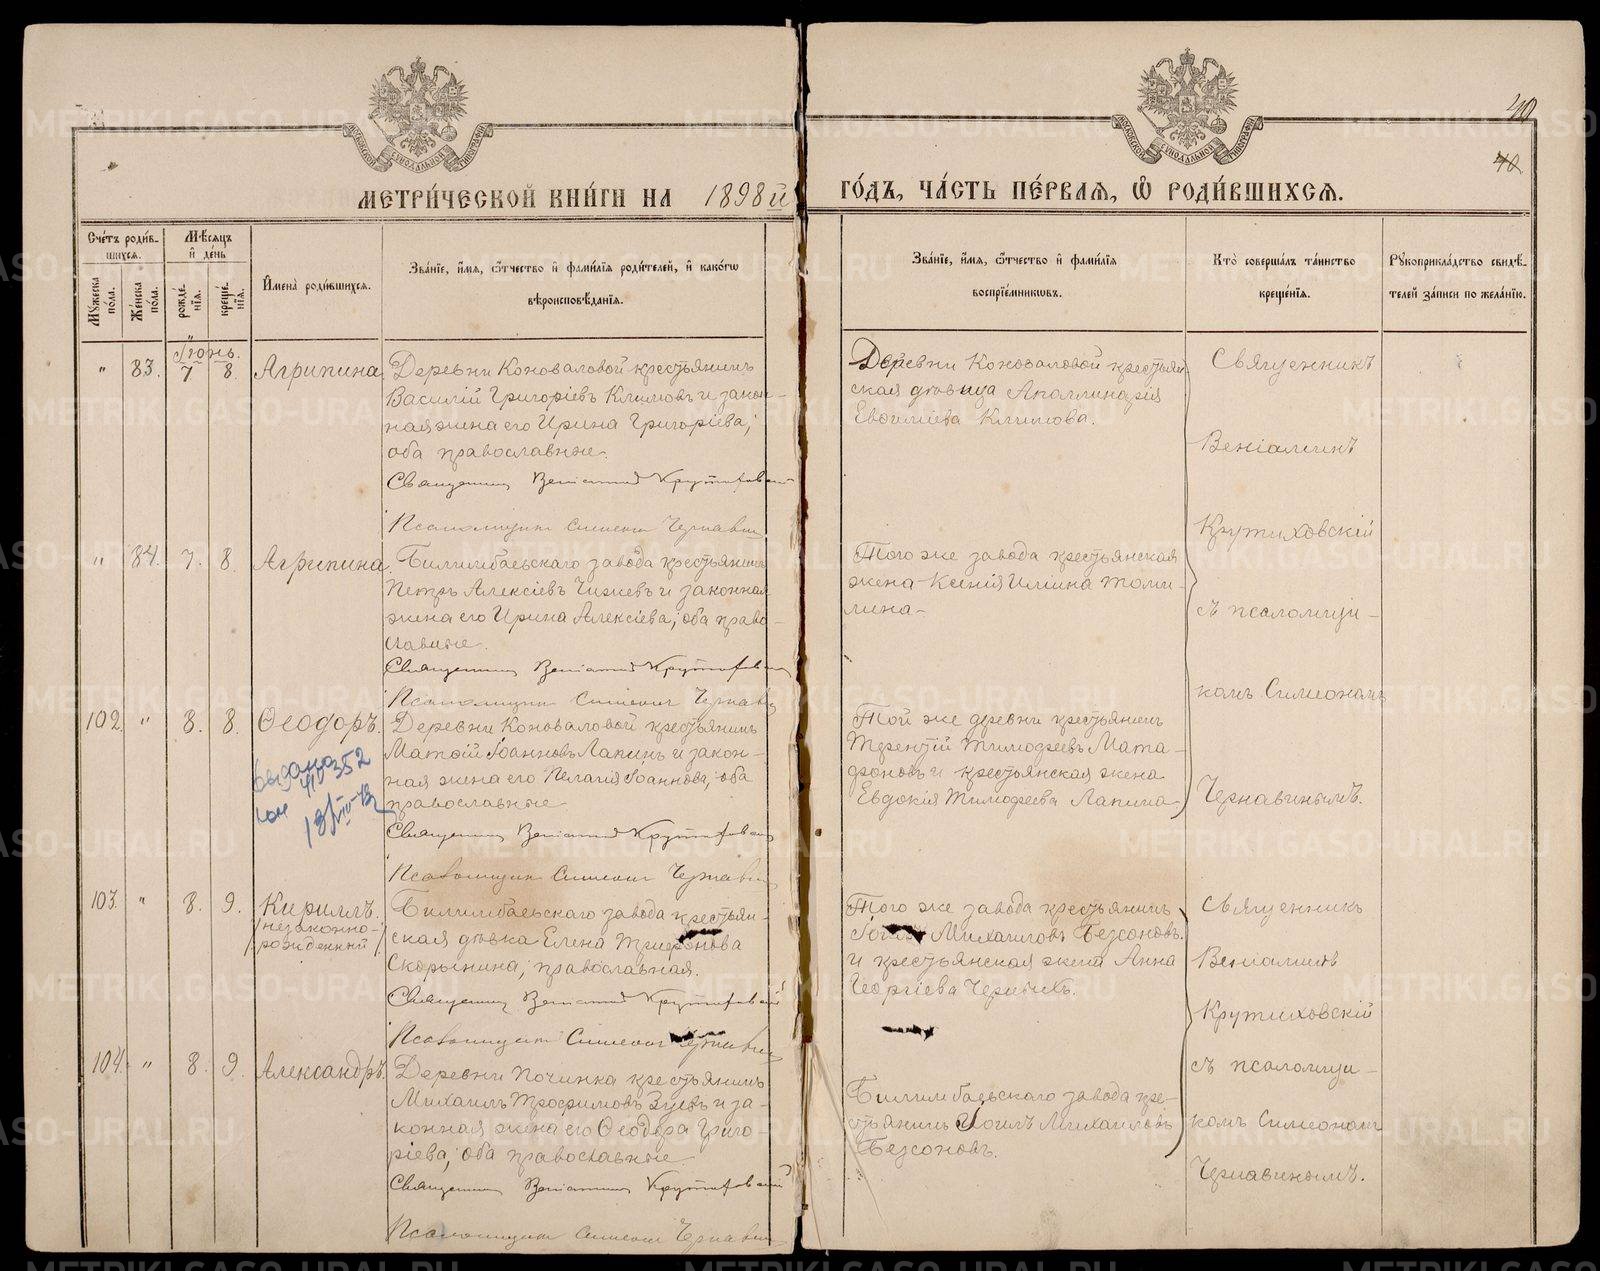 40
40
МЕТРИ́ЧЕСКОЙ КНИ́ГИ НА 1898й ГО́ДЪ, ЧА́СТЬ ПЕ́РВАЯ, Ѽ РОДИ́ВШИХСЯ.
Счетъ роди́в-
шихся.
Мѣсяцъ
и де́нь
Мꙋжеска
по́ла.
Же́нска
по́ла.
рожде́-
нїя.
креще́-
нїя.
И҆мена̀ роди́вшихся.
Зва́нїе, и҆́мя, ѻ҆́тчество и҆ фами́лїя роди́телей, и҆ како́гѡ
вѣроисповѣ́данїя.
Зва́нїе, и҆́мя, ѻ҆́тчество и҆ фами́лїя
воспрїе́мникѡвъ.
Кто̀ соверша́лъ та́инство
креще́нїя.
Рꙋкоприкла́дство свидѣ́-
телей за́писи по жела́нїю.
Іюнь.
" 83. 7 8. Агрипина
Деревни Коноваловой крестьянинъ
Василій Григоріевъ Климовъ и закон-
ная жена его Ирина Григоріева;
оба православные.
Священникъ Веніаминъ Крутиховскій
Псаломщикъ Симеонъ Чернавинъ
Деревни Коноваловой крестьян-
ская дѣвица Аполлинарія
Евѳиміева Климова.
Священникъ
Веніаминъ
Крутиховскій
съ псаломщи-
комъ Симеономъ
Чернавинымъ.
" 84. 7. 8. Агрипина.
Билимбаевскаго завода крестьянинъ
Петръ Алексіевъ и законная
жена его Ирина Алексіева; оба право-
славные.
Священникъ Веніаминъ Крутиховскій
Псаломщикъ Симеонъ Чернавинъ
Того же завода крестьянская
жена Ксенія Иліина Томи-
лина.
102. " 8. 8. Ѳеодоръ.
выдано
352
Деревни Коноваловой крестьянинъ
Матѳій Іоанновъ Лапинъ и закон-
ная жена его Пелагія Іоаннова; оба
православные
Священникъ Веніаминъ Крутиховскій
Псаломщикъ Симеонъ Чернавинъ
Той же деревни крестьянинъ
Терентій Тимоѳеевъ Мата-
фоновъ и крестьянская жена
Евдокія Тимоѳеева Лапина
103. " 8. 9. Кириллъ.
/незаконно-
рожденный/
Билимбаевскаго завода крестьян-
ская дѣвка Елена Трифонова
Скорынина; православная.
Священникъ Веніаминъ Крутиховскій
Псаломщикъ Симеонъ Чернавинъ
Того же завода крестьянинъ
Михаиловъ Безсоновъ
и крестьянская жена Анна
Георгіева Черныхъ.
Священникъ
Веніаминъ
Крутиховскій
съ псаломщи-
комъ Симеономъ
Чернавинымъ.
104. " 8. 9. Александръ.
Деревни Починка крестьянинъ
Михаилъ Трофимовъ Зуевъ и за-
конная жена его Ѳеодора Григо-
ріева; оба православные
Священникъ Веніаминъ Крутиховскій
Псаломщикъ Симеонъ Чернавинъ
Билимбаевскаго завода кре-
стьянинъ Іоилъ Михаиловъ
Безсоновъ.
METRIKI.GASO-URAL.RU